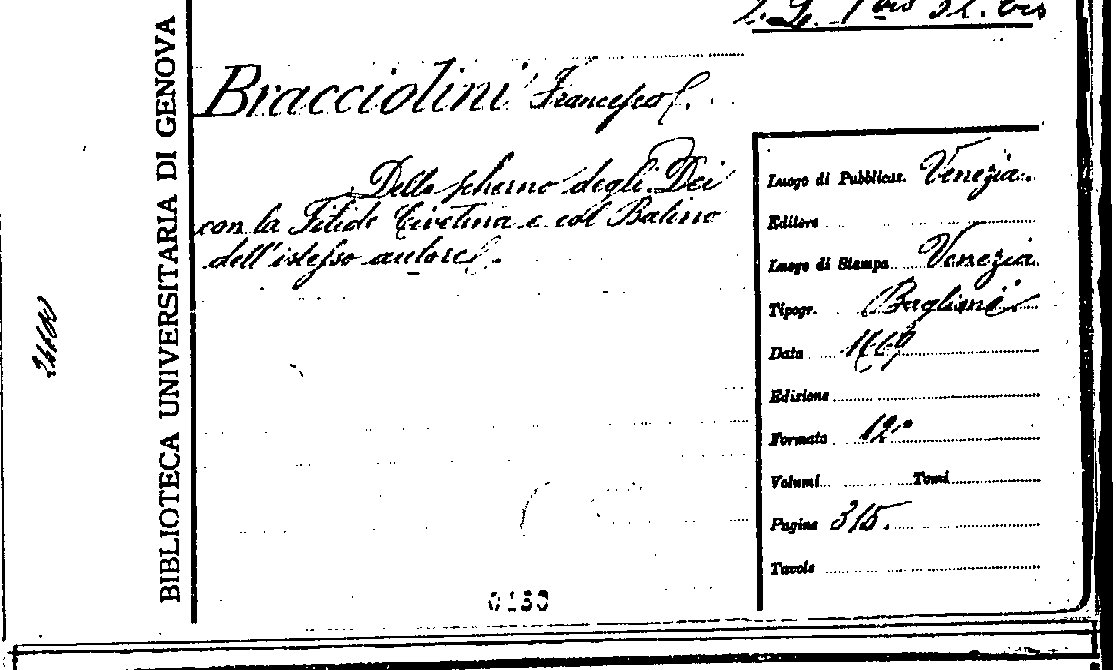 BIBLIOTECA UNIVERSITARIA DI GENOVA
Bracciolini Francesco
Dello scherno degli Dei
con la Fillide Civettina e col Batino
dell'istesso autore.
Luogo di Pubblicaz. Venezia
Editore
Luogo di Stampa Venezia
Tipogr. Baglioni
Data 1669
Edizione
Formato 12°
Volumi Tomi
Pagine 315.
Tavole